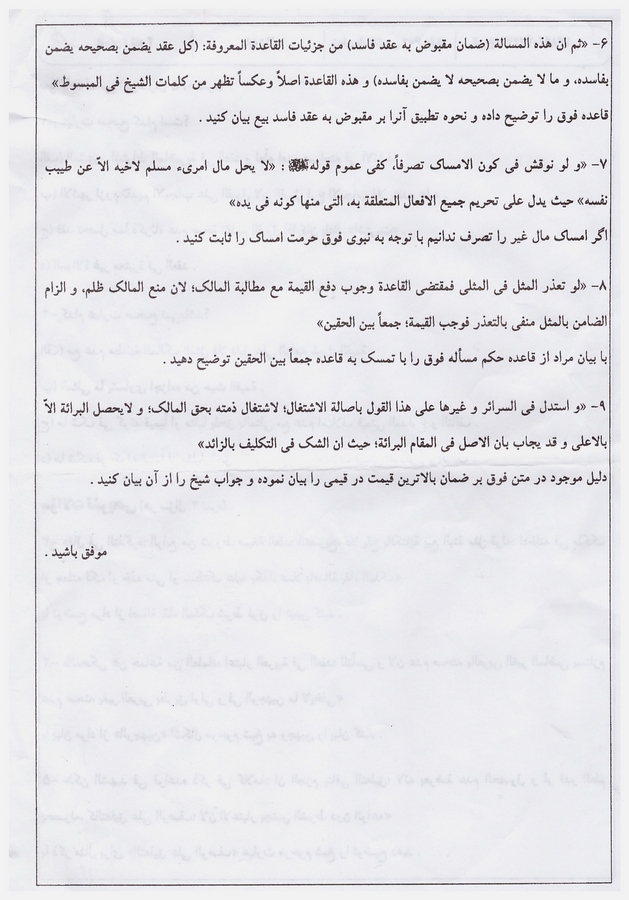 ۶- «ثم ان هذه المسالة (ضمان مقبوض به عقد فاسد) من جزئیات القاعدة المعروفة: (کل عقد یضمن بصحیحه یضمن
بفاسده، و ما لا یضمن بصحیحه لا یضمن بفاسده) و هذه القاعدة اصلاً وعکساً تظهر من کلمات الشیخ فی المبسوط»
قاعده فوق را توضیح داده و نحوه تطبیق آنرا بر مقبوض به عقد فاسد بیع بیان کنید .
۷- «و لو نوقش فی کون الامساک تصرفاً، کفی عموم قولهﷺ : «لا یحل مال امریء مسلم لاخیه الاّ عن طیب
نفسه» حیث یدل علی تحریم جمیع الافعال المتعلقة به، التی منها کونه فی یده»
اگر امساک مال غیر را تصرف ندانیم با توجه به نبوی فوق حرمت امساک را ثابت کنید .
۸- «لو تعذر المثل فی المثلی فمقتضی القاعدة وجوب دفع القیمة مع مطالبة المالک؛ لان منع المالک ظلم، و الزام
الضامن بالمثل منفی بالتعذر فوجب القیمة؛ جمعاً بین الحقین»
با بیان مراد از قاعده حکم مسأله فوق را با تمسک به قاعده جمعاً بین الحقین توضیح دهید .
۹- «و استدل فی السرائر و غیرها علی هذا القول باصالة الاشتغال؛ لاشتغال ذمته بحق المالک؛ و لایحصل البرائة الاّ
بالاعلی و قد یجاب بان الاصل فی المقام البرائة؛ حیث ان الشک فی التکلیف بالزائد»
دلیل موجود در متن فوق بر ضمان بالاترین قیمت در قیمی را بیان نموده و جواب شیخ را از آن بیان کنید .
موفق باشید .